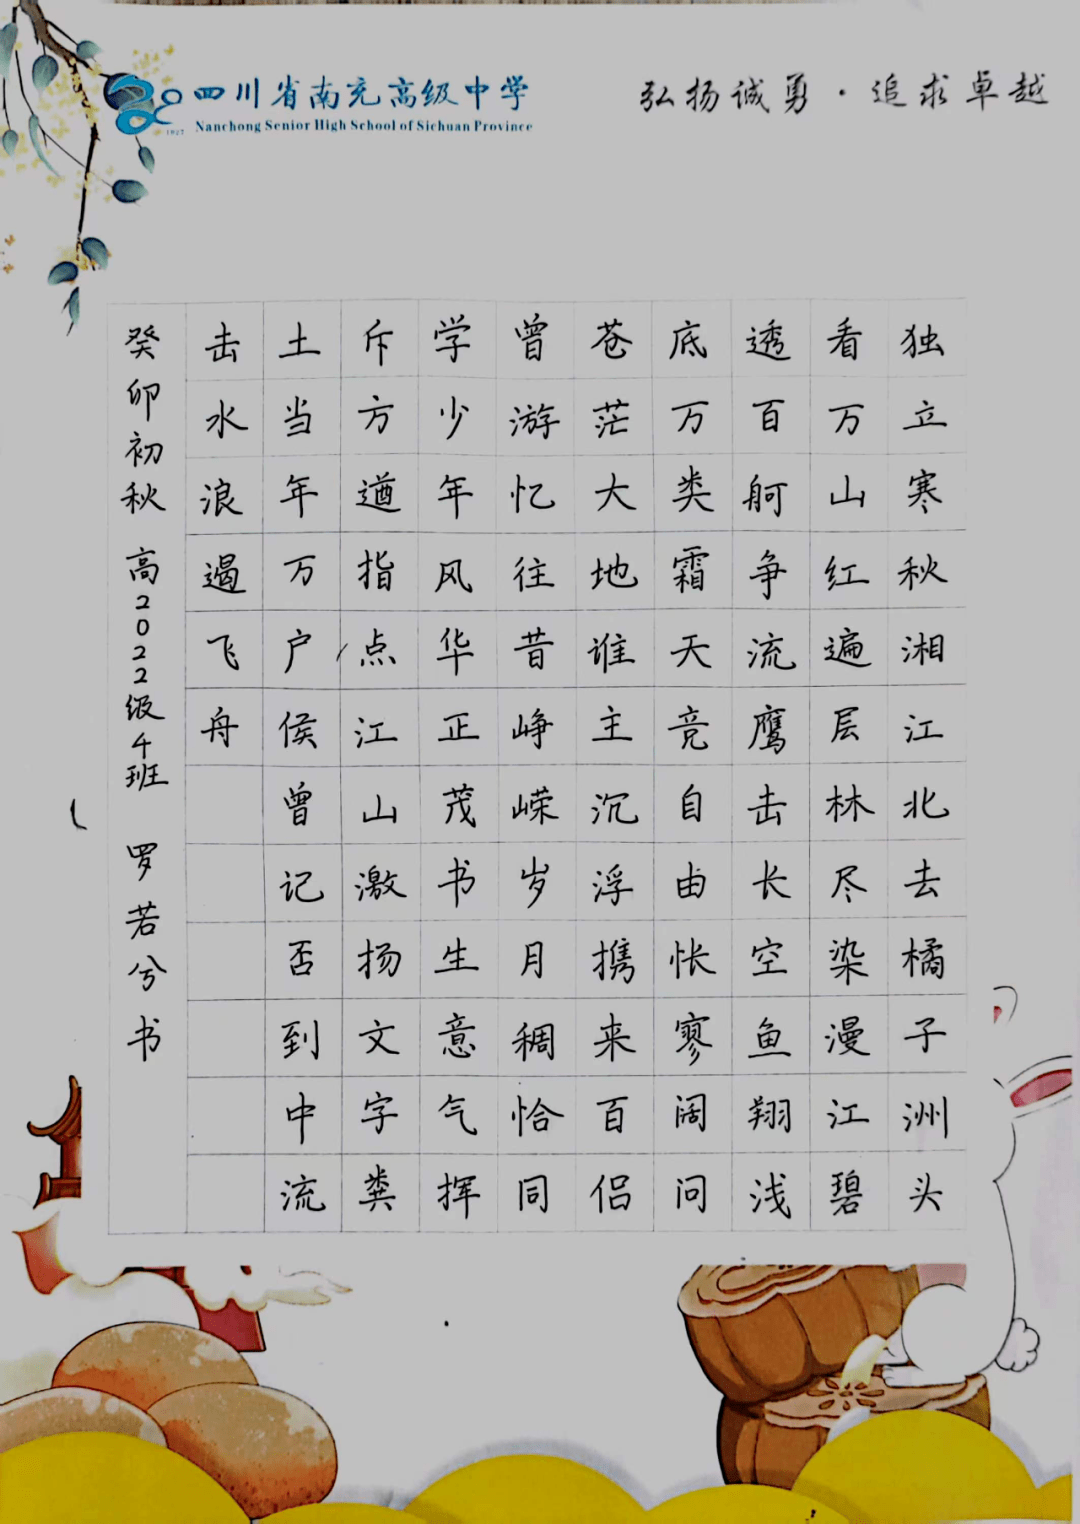 四川省南充高级中学
Nanchong Senior High School of Sichuan Province
1927
弘扬诚勇·追求卓越
独立寒秋湘江北去橘子洲头
看万山红遍层林尽染漫江碧
透百舸争流鹰击长空鱼翔浅
底万类霜天竞自由怅寥阔问
苍茫大地谁主沉浮携来百侣
曾游忆往昔峥嵘岁月稠恰同
学少年风华正茂书生意气挥
斥方遒指点江山激扬文字粪
土当年万户侯曾记否到中流
击水浪遏飞舟
癸卯初秋 高2022级4班 罗若兮 书